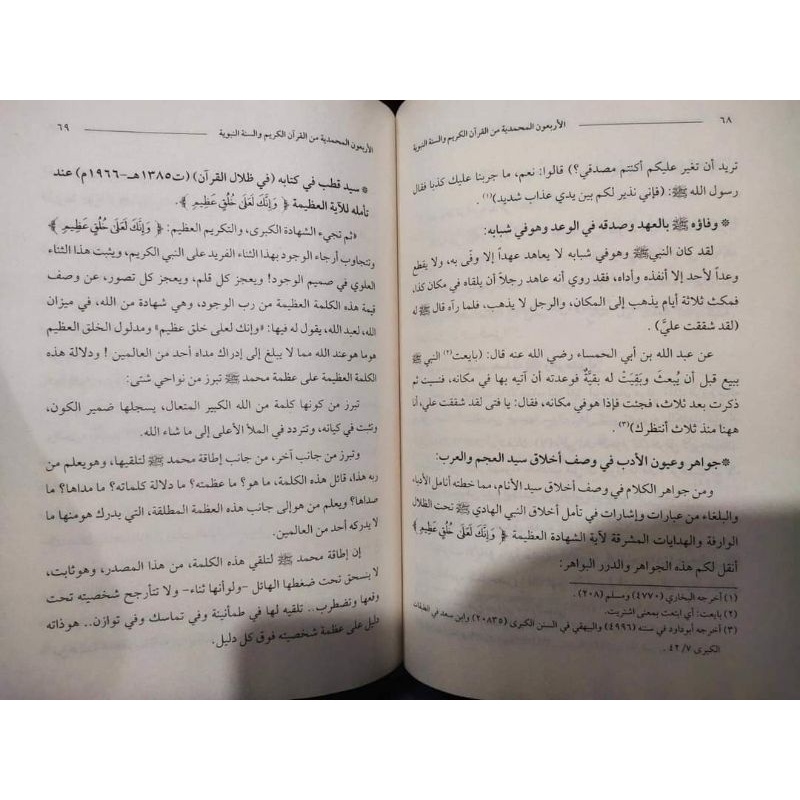 ٦٨ الأربعون المحمدية من القرآن الكريم والسنة النبوية
تريد أن تغير عليكم أكنتم مصدقي؟) قالوا: نعم، ما جربنا عليك كذبا فقال
رسول الله ﷺ: (فإني نذير لكم بين يدي عذاب شديد)(١) .
* وفاؤه ﷺ بالعهد وصدقه في الوعد وهوفي شبابه:
لقد كان النبيﷺ وهوفي شبابه لا يعاهد عهداً إلا وفّى به، ولا يقطع
وعداً لأحد إلا أنفذه وأداه، فقد روي أنه عاهد رجلاً أن يلقاه في مكان كذا،
فمكث ثلاثة أيام يذهب إلى المكان، والرجل لا يذهب، فلما رآه قال ﷺ له
(لقد شققت عليَّ) .
عن عبد الله بن أبي الحمساء رضي الله عنه قال: (بايعت(٢) النبي ﷺ
ببيع قبل أن يُبعثَ وبَقِيَتْ له بقيَّةٌ فوعدته أن آتيه بها في مكانه، فنسيت ثم
ذكرت بعد ثلاث، فجئت فإذا هوفي مكانه، فقال: يا فتى لقد شققت علي، أنا
ههنا منذ ثلاث أنتظرك)(٣) .
*جواهر وعيون الأدب في وصف أخلاق سيد العجم والعرب:
ومن جواهر الكلام في وصف أخلاق سيد الأنام، مما خطته أنامل الأدباء
والبلغاء من عبارات وإشارات في تأمل أخلاق النبي الهادي ﷺ تحت الظلال
الوارفة والهدايات المشرقة لآية الشهادة العظيمة ﴿ وَإِنَّكَ لَعَلَىٰ خُلُقٍ عَظِيمٍ ﴾
أنقل لكم هذه الجواهر والدرر البواهر:
(١) أخرجه البخاري (٤٧٧٠) ومسلم (٢٠٨) .
(٢) بايعت: أي ابتعت بمعنى اشتريت.
(٣) أخرجه أبوداود في سننه (٤٩٩٦) والبيهقي في السنن الكبرى (٢٠٨٣٥) وابن سعد في الطبقات
الكبرى ٧/ ٤٢ .
الأربعون المحمدية من القرآن الكريم والسنة النبوية ٦٩
* سيد قطب في كتابه (في ظلال القرآن) (ت١٣٨٥هـ-١٩٦٦م) عند
تأمله للآية العظيمة ﴿ وَإِنَّكَ لَعَلَىٰ خُلُقٍ عَظِيمٍ ﴾.
«ثم تجيء الشهادة الكبرى، والتكريم العظيم: ﴿ وَإِنَّكَ لَعَلَىٰ خُلُقٍ عَظِيمٍ ﴾
وتتجاوب أرجاء الوجود بهذا الثناء الفريد على النبي الكريم، ويثبت هذا الثناء
العلوي في صميم الوجود! ويعجز كل قلم، ويعجز كل تصور، عن وصف
قيمة هذه الكلمة العظيمة من رب الوجود، وهي شهادة من الله، في ميزان
الله، لعبد الله، يقول له فيها: «وإنك لعلى خلق عظيم» ومدلول الخلق العظيم
هوما هوعند الله مما لا يبلغ إلى إدراك مداه أحد من العالمين ! ودلالة هذه
الكلمة العظيمة على عظمة محمد ﷺ تبرز من نواحي شتى:
تبرز من كونها كلمة من الله الكبير المتعال، يسجلها ضمير الكون،
وتثبت في كيانه، وتتردد في الملأ الأعلى إلى ما شاء الله.
وتبرز من جانب آخر، من جانب إطاقة محمد ﷺ لتلقيها، وهويعلم من
ربه هذا، قائل هذه الكلمة، ما هو؟ ما عظمته؟ ما دلالة كلماته؟ ما مداها؟ ما
صداها؟ ويعلم من هوإلى جانب هذه العظمة المطلقة، التي يدرك هومنها ما
لا يدركه أحد من العالمين.
إن إطاقة محمد ﷺ لتلقي هذه الكلمة، من هذا المصدر، وهوثابت،
لا ينسحق تحت ضغطها الهائل -ولوأنها ثناء- ولا تتأرجح شخصيته تحت
وقعها وتضطرب.. تلقيه لها في طمأنينة وفي تماسك وفي توازن.. هوذاته
دليل على عظمة شخصيته فوق كل دليل.